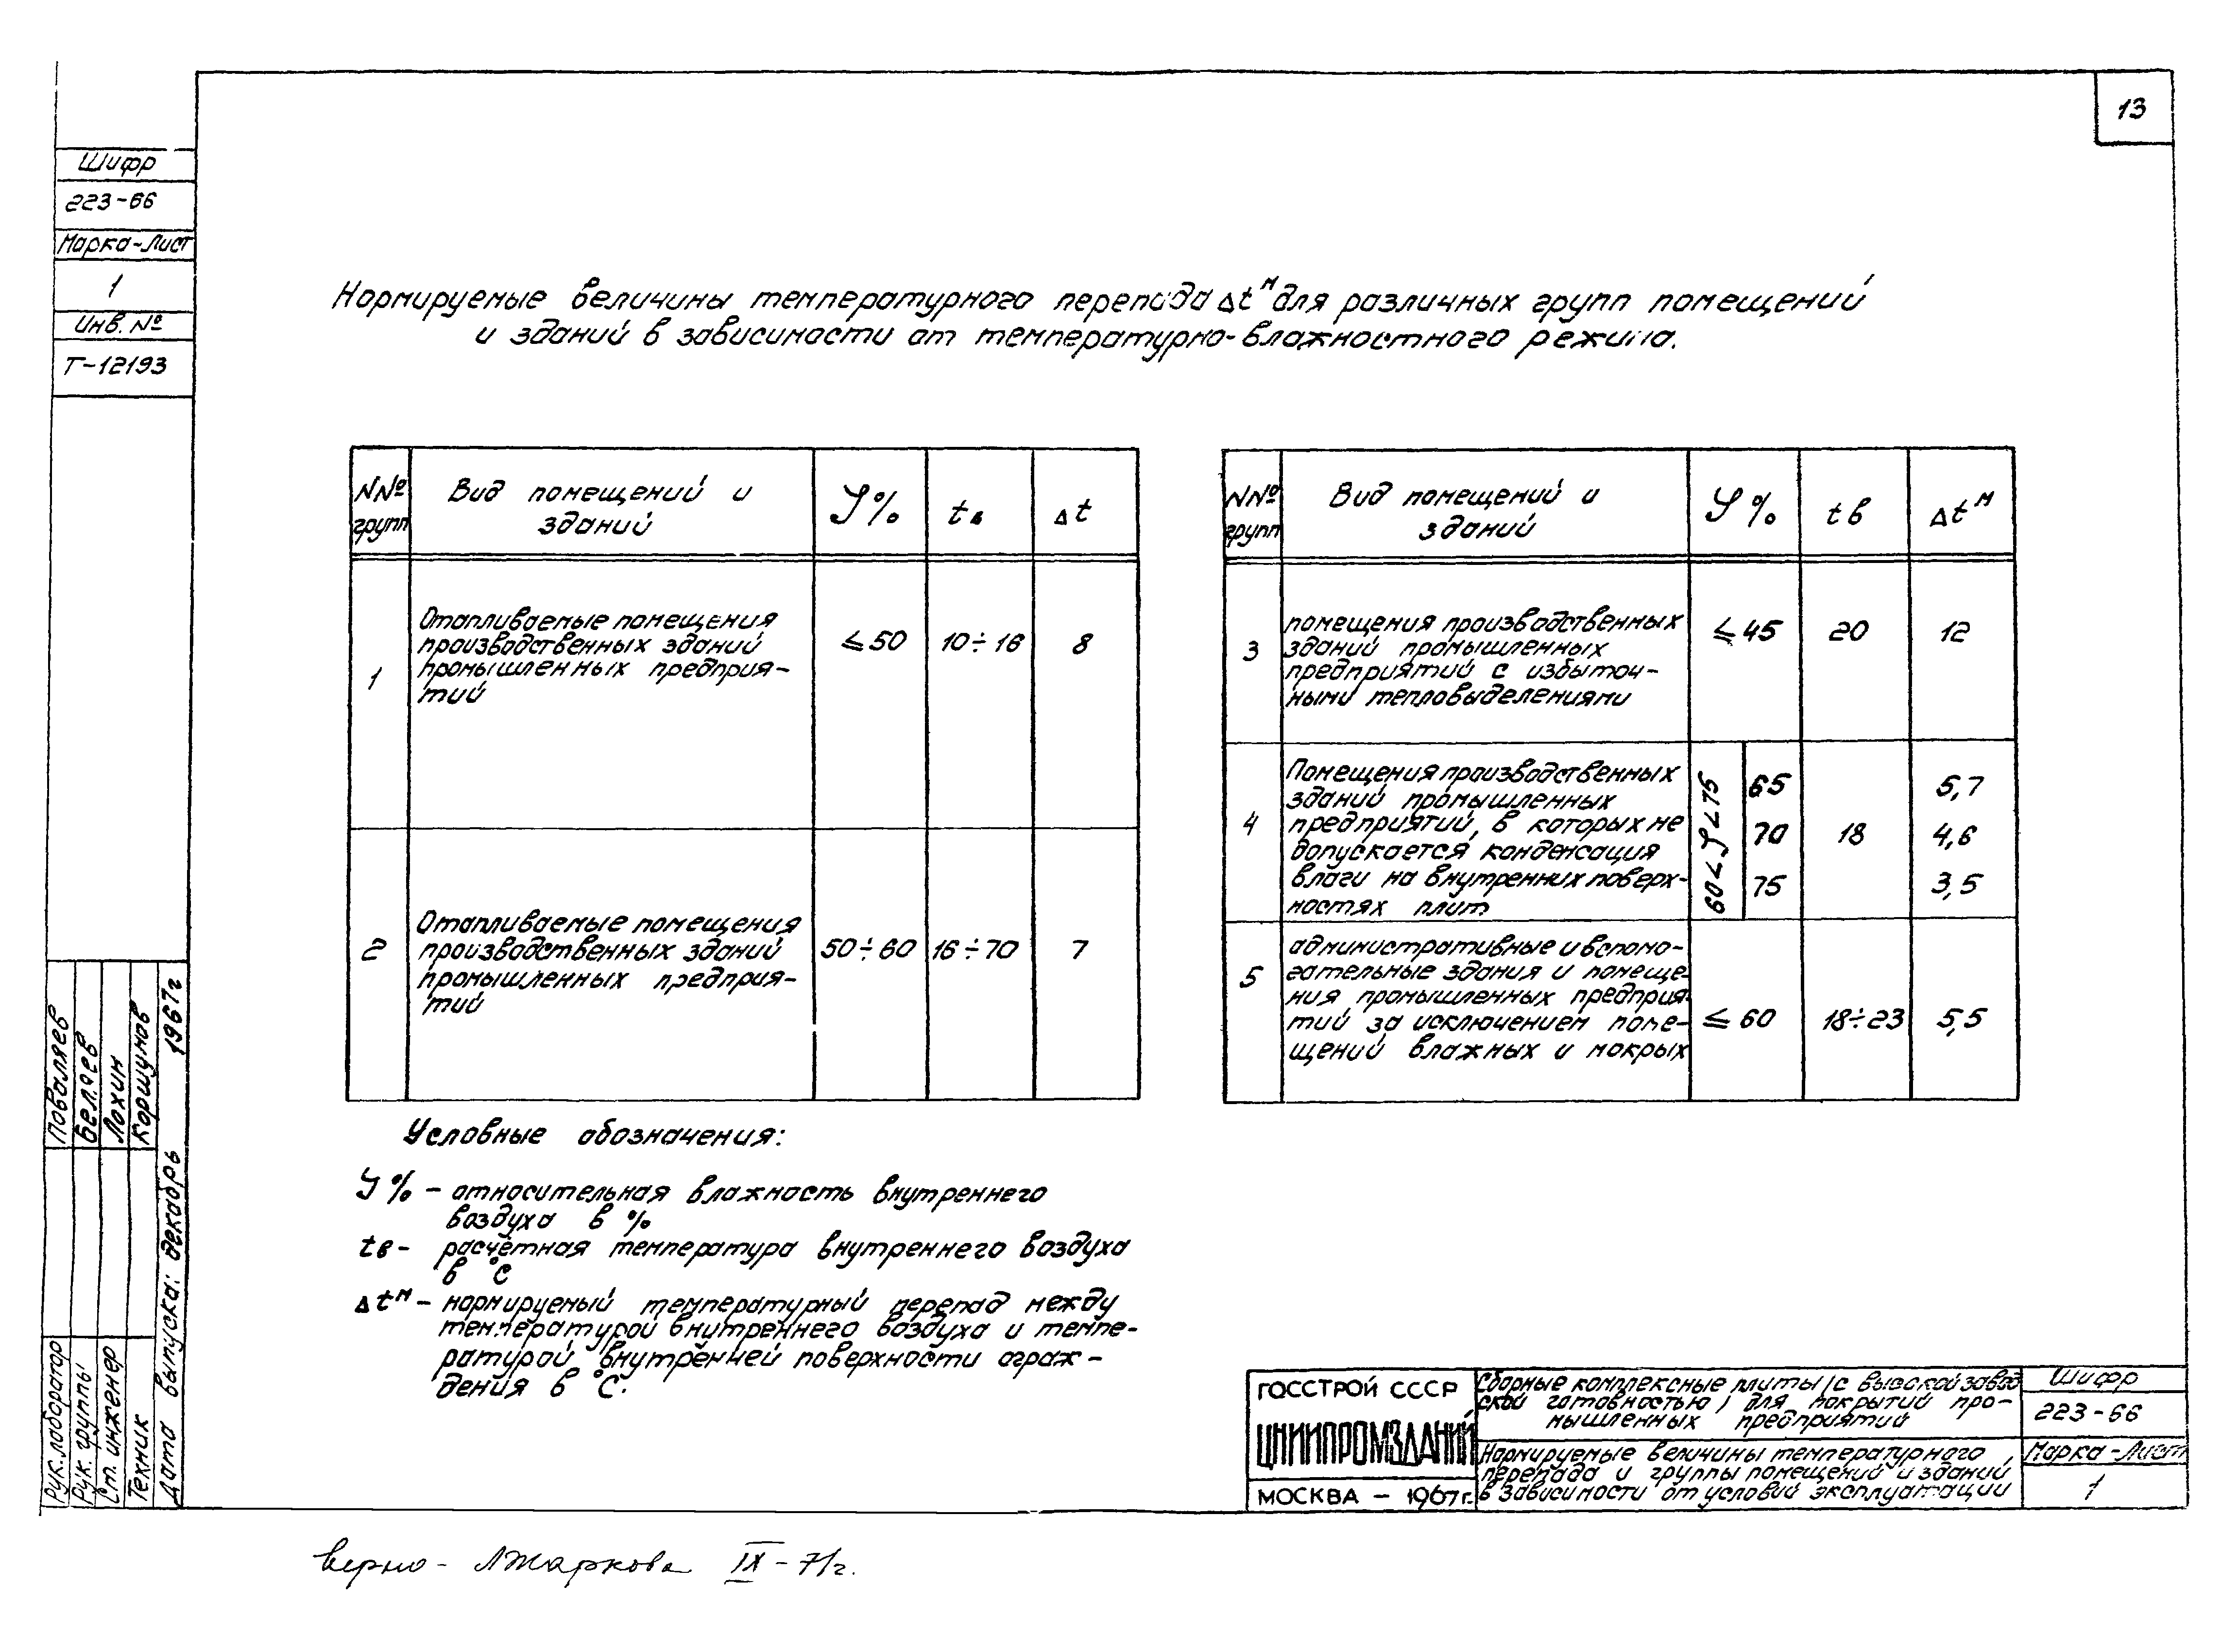 13
Шифр
223-66
Марка-Лист
1
Инв. №
Т-12193
Нормируемые величины температурного перепада Δtᴺ для различных групп помещений
и зданий в зависимости от температурно-влажностного режима.
N№
групп
Вид помещений и
зданий
φ%
tв
Δt
1
Отапливаемые помещения
производственных зданий
промышленных предприя-
тий
≤50
10÷16
8
2
Отапливаемые помещения
производственных зданий
промышленных предприя-
тий
50÷60
16÷70
7
N№
групп
Вид помещений и
зданий
φ%
tв
Δtᴺ
3
помещения производственных
зданий промышленных
предприятий с избыточ-
ными тепловыделениями
≤45
20
12
4
Помещения производственных
зданий промышленных
предприятий, в которых не
допускается конденсация
влаги на внутренних поверх-
ностях плит
60<φ<75
65
70
75
18
5,7
4,6
3,5
5
административные и вспомо-
гательные здания и помеще-
ния промышленных предприя-
тий за исключением поме-
щений влажных и мокрых
≤60
18÷23
5,5
Условные обозначения:
φ% – относительная влажность внутреннего
воздуха в %
tв – расчётная температура внутреннего воздуха
в °C
Δtᴺ – нормируемый температурный перепад между
температурой внутреннего воздуха и темпе-
ратурой внутренней поверхности ограж-
дения в °C.
Рук. лаборатор
Поваляев
Рук. группы
Беляев
Ст. инженер
Лохин
Техник
Коршунов
Дата выпуска: декабрь 1967г
ГОССТРОЙ СССР
ЦНИИПРОМЗДАНИЙ
МОСКВА – 1967г.
Сборные комплексные плиты (с высокой завод
ской готовностью) для покрытий про-
мышленных предприятий
Нормируемые величины температурного
перепада и группы помещений и зданий
в зависимости от условий эксплуатации
Шифр
223-66
Марка-Лист
1
верно – ЛЖаркова IX-71г.